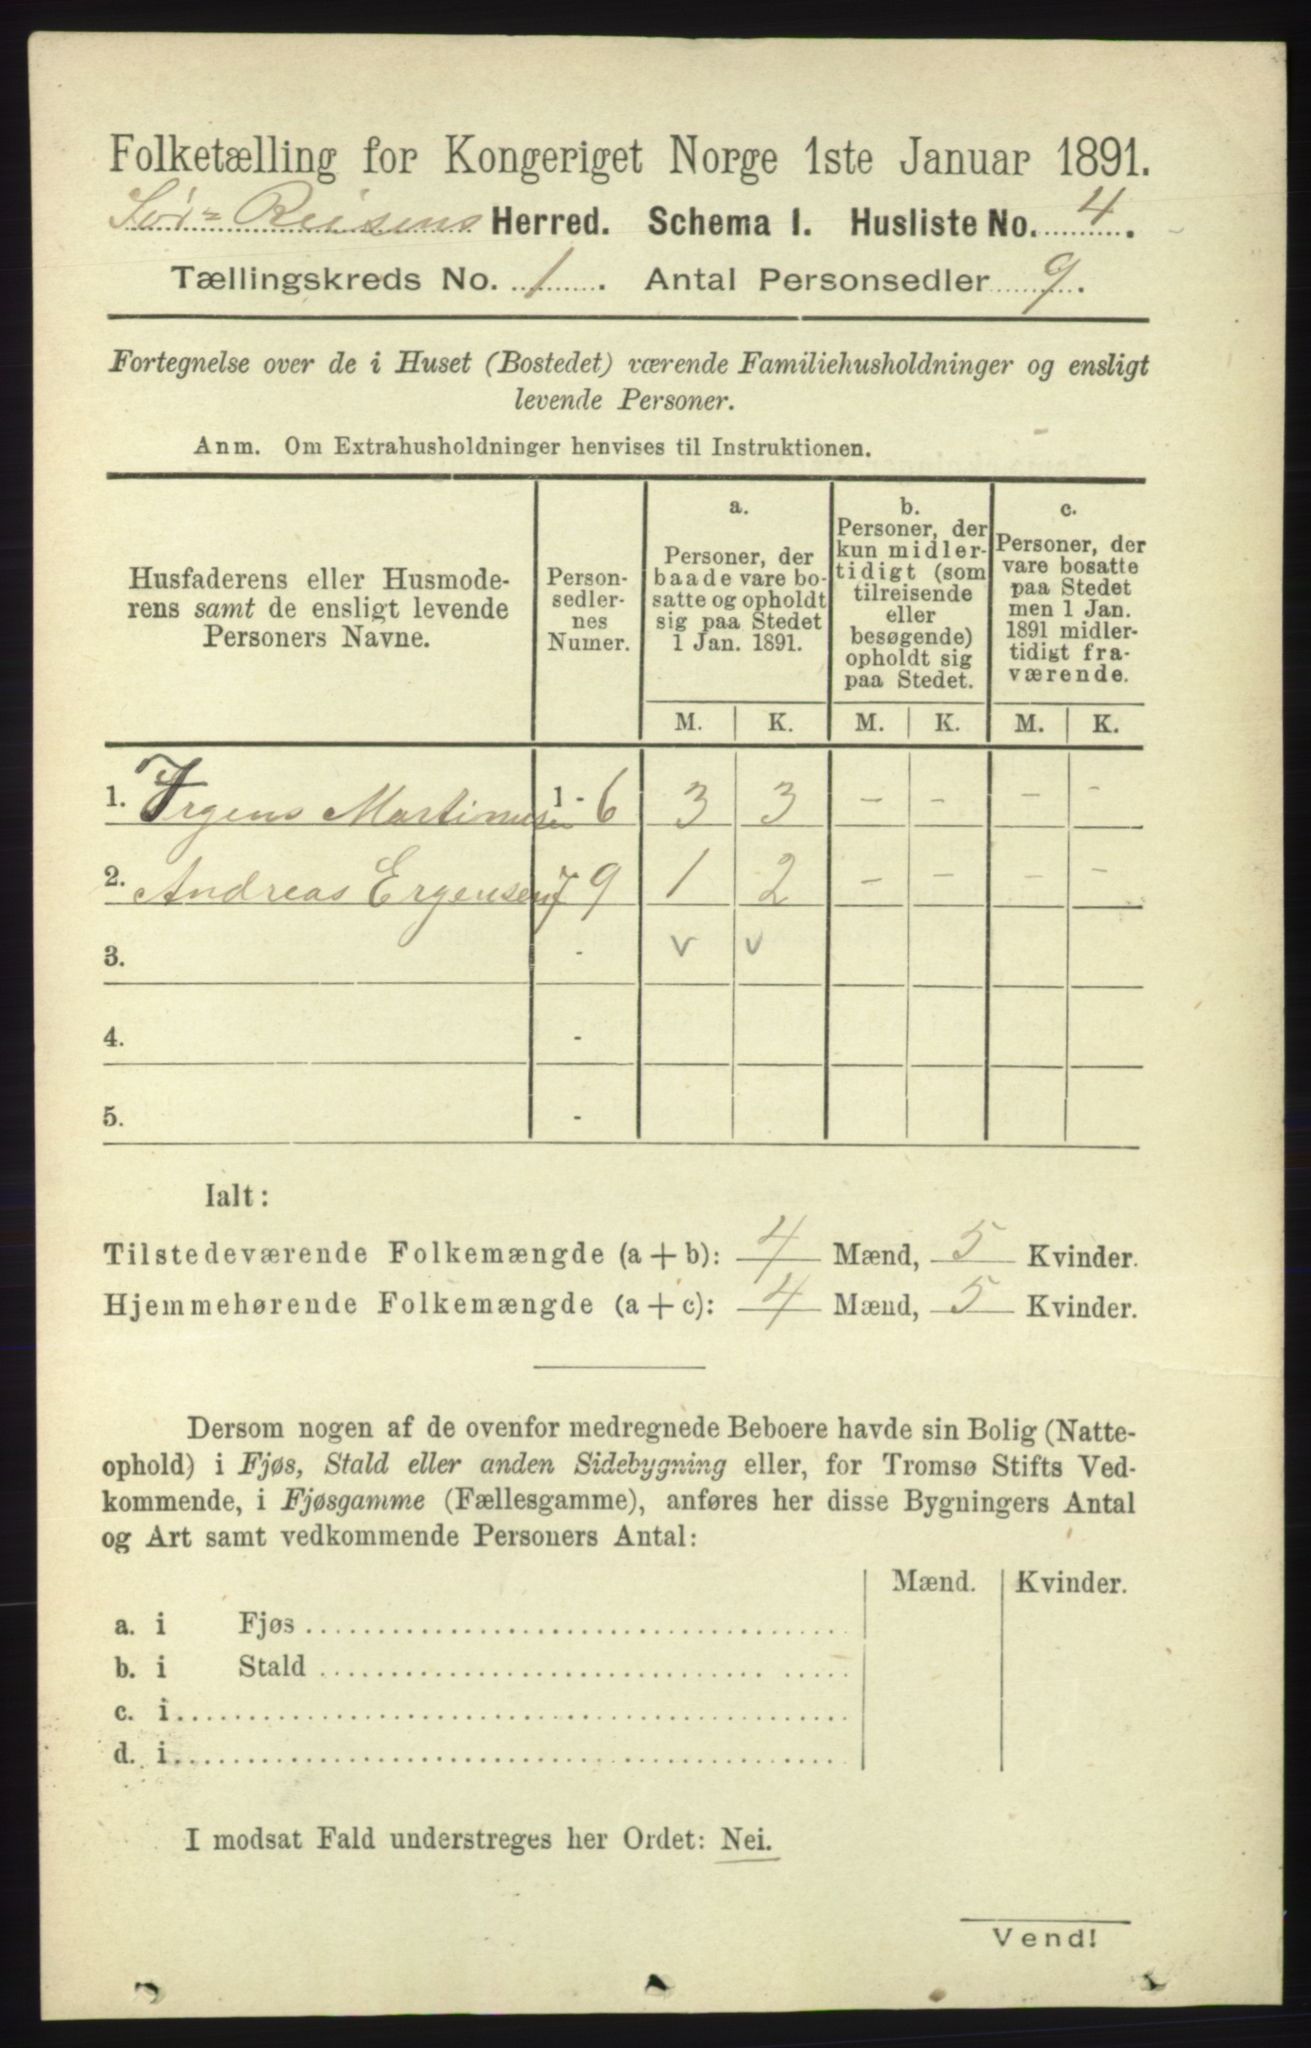 Folketælling for Kongeriget Norge 1ste Januar 1891.
Sør-Reisens Herred. Schema I. Husliste No. 4.
Tællingskreds No. 1. Antal Personsedler 9.
Fortegnelse over de i Huset (Bostedet) værende Familiehusholdninger og ensligt
levende Personer.
Anm. Om Extrahusholdninger henvises til Instruktionen.
Husfaderens eller Husmode-
rens samt de ensligt levende
Personers Navne.
Person-
sedler-
nes
Numer.
a.
Personer, der
baade vare bo-
satte og opholdt
sig paa Stedet
1 Jan. 1891.
b.
Personer, der
kun midler-
tidigt (som
tilreisende
eller
besøgende)
opholdt sig
paa Stedet.
c.
Personer, der
vare bosatte
paa Stedet
men 1 Jan.
1891 midler-
tidigt fra-
værende.
M. K. M. K. M. K.
1. Irgens Martinusen 1 - 6 3 3 - - - -
2. Andreas Ergensen 7 9 1 2 - - - -
3. - v v
4. -
5. -
Ialt:
Tilstedeværende Folkemængde (a + b): 4 Mænd, 5 Kvinder.
Hjemmehørende Folkemængde (a + c): 4 Mænd, 5 Kvinder.
Dersom nogen af de ovenfor medregnede Beboere havde sin Bolig (Natte-
ophold) i Fjøs, Stald eller anden Sidebygning eller, for Tromsø Stifts Ved-
kommende, i Fjøsgamme (Fællesgamme), anføres her disse Bygningers Antal
og Art samt vedkommende Personers Antal:
Mænd. Kvinder.
a. i Fjøs
b. i Stald
c. i
d. i
I modsat Fald understreges her Ordet: Nei.
Vend!